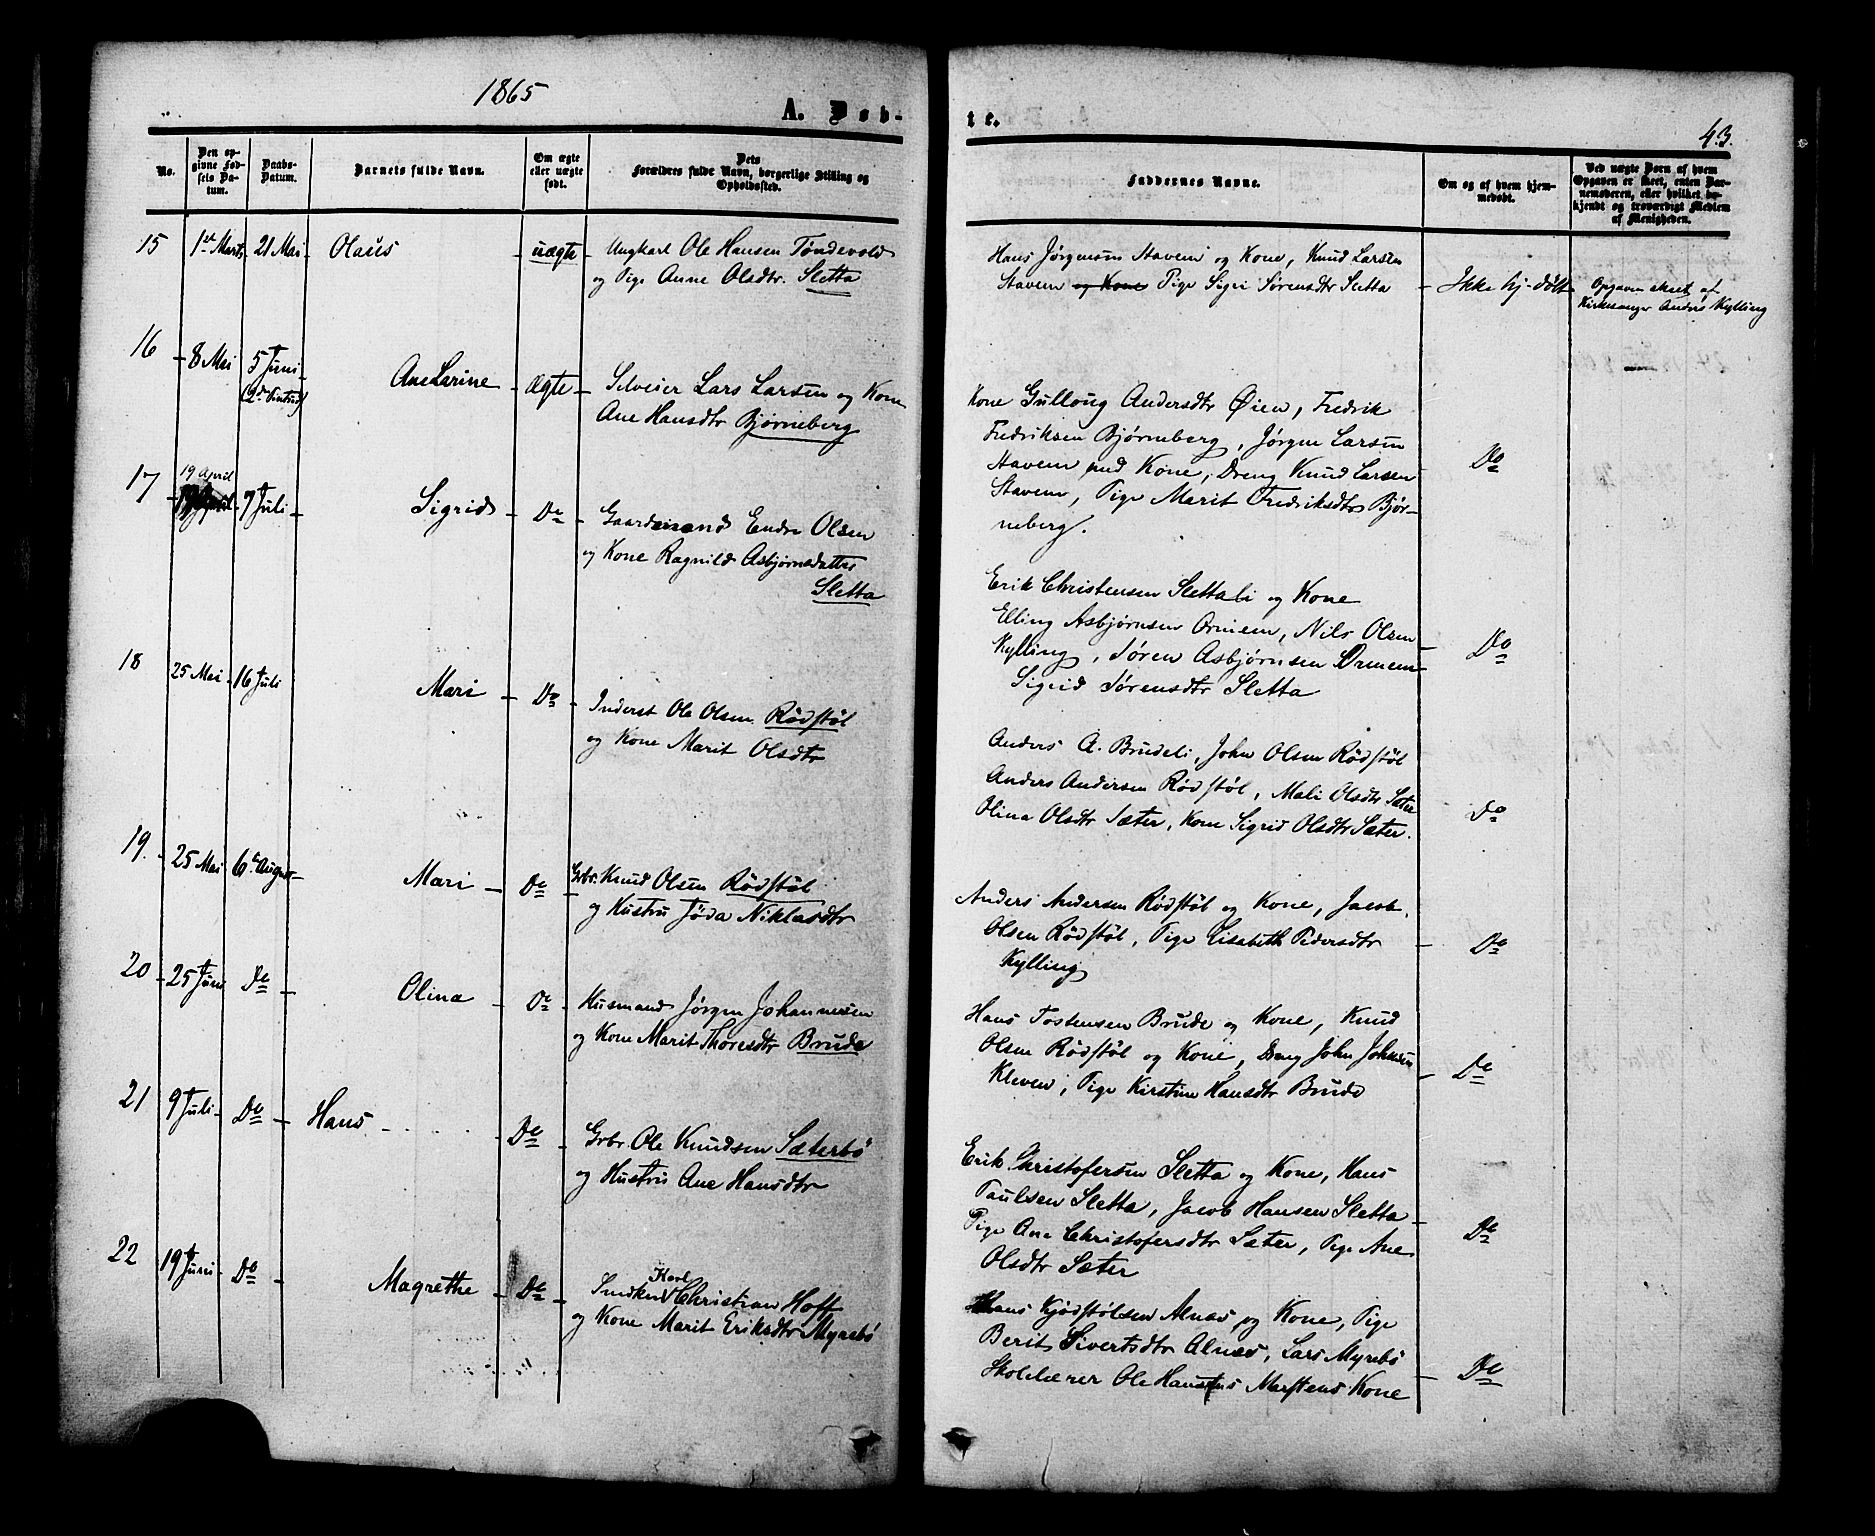 1865
A. Døb-
te.
43.
No.
Den op-
givne Fød-
sels Da-
tum.
Daabs-
Datum.
Barnets fulde Navn.
Om ægte
eller uægte
født.
Dets
Forældres fulde Navn, borgerlige Stilling og
Opholdssted.
Faddernes Navne.
Om og af hvem hjem-
medøbt.
Ved uægte Børn af hvem
Opgaven er skeet, enten Bar-
nemoderen, eller hvilket be-
kjendt og troværdigt Medlem
af Menigheden.
15 1ste Marts 21 Mai Olaus uægte Ungkarl Ole Hansen Tøndevold
og Pige Anne Olsdtr. Sletta
Hans Jørgensen Stavem og Kone, Knud Larsen
Stavem og Kone Pige Sigri Sørensdtr Sletta
Ikke hj-døbt
Opgaven skeet af
Kirkesanger Anders Kylling
16 8 Mai 5 Juni (2den Pintsed) Ane Larine Ægte Selveier Lars Larsen og Kone
Ane Hansdtr Bjørneberg
Kone Gulloug Andersdtr Øien, Fredrik
Fredriksen Bjørneberg, Jørgen Larsen
Stavem med Kone, Dreng Knud Larsen
Stavem, Pige Marit Fredriksdtr Bjør-
neberg.
Do
17 19 April 7 Juli Sigrid Do Gaardmand Endre Olsen
og Kone Ragnild Asbjørnsdatter
Sletta
Erik Christensen Slettali og Kone
Elling Asbjørnsen Ormem, Nils Olsen
Kylling, Søren Asbjørnsen Ormem
Sigrid Sørensdtr Sletta
Do
18 25 Mai 16 Juli Mari Do Inderst Ole Olsen Rødstøl
og Kone Marit Olsdtr
Anders A. Brudeli, John Olsen Rødstøl
Anders Andersen Rødstøl, Mali Olsdtr Sæter
Olina Olsdtr Sæter, Kone Sigrid Olsdtr Sæter.
Do
19. 25 Mai 6te August Mari Do Grbr. Knud Olsen Rødstøl
og Hustru Jøda Niklasdtr
Anders Andersen Rødstøl og Kone, Jacob
Olsen Rødstøl, Pige Lisabeth Pedersdtr
Kylling
Do
20 25 Juni Do Olina Do Husmand Jørgen Johannesen
og Kone Marit Thoresdtr Brude
Hans Tostensen Brude og Kone, Knud
Olsen Rødstøl og Kone, Dreng John Johnsen
Kleven, Pige Kirstine Hansdtr Brude
Do
21 9 Juli Do Hans Do Grbr. Ole Knudsen Sæterbø
og Hustru Ane Hansdtr
Erik Christofersen Sletta og Kone, Hans
Paulsen Sletta, Jacob Hansen Sletta
Pige Ane Christofersdtr Sæter, Pige Ane
Olsdtr Sæter
Do
22 19 Juni Do Magrethe Do Karl Christian Hoff
og Kone Marit Eriksdtr Myrebø
Hans Kjødstølsen Alnæs og Kone, Pige
Berit Sivertsdtr Alnæs, Lars Myrebø
Skolelærer Ole Marstens Kone
Do